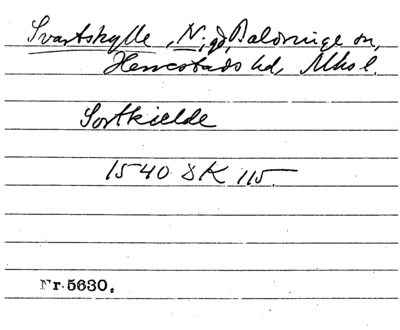 Svartskylle, N; gd, Baldringe sn,
Herrestads hd, Mhs l.
Sortkielde
1540 DK 115
Nr. 5630.